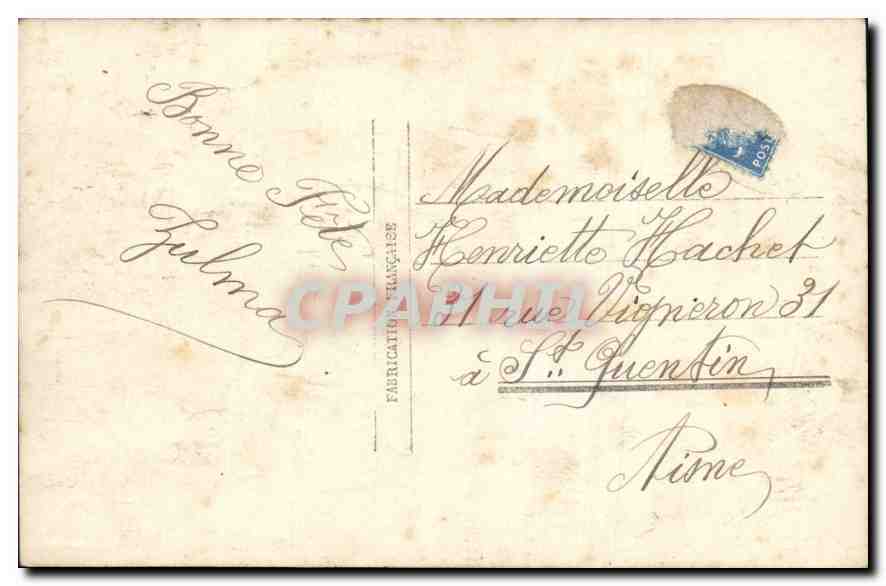 Bonne Fête
Zulma
FABRICATION FRANÇAISE
POST
Mademoiselle
Henriette Hachet
31 rue Vigneron 31
à St. Quentin
Aisne
CPAPHIL